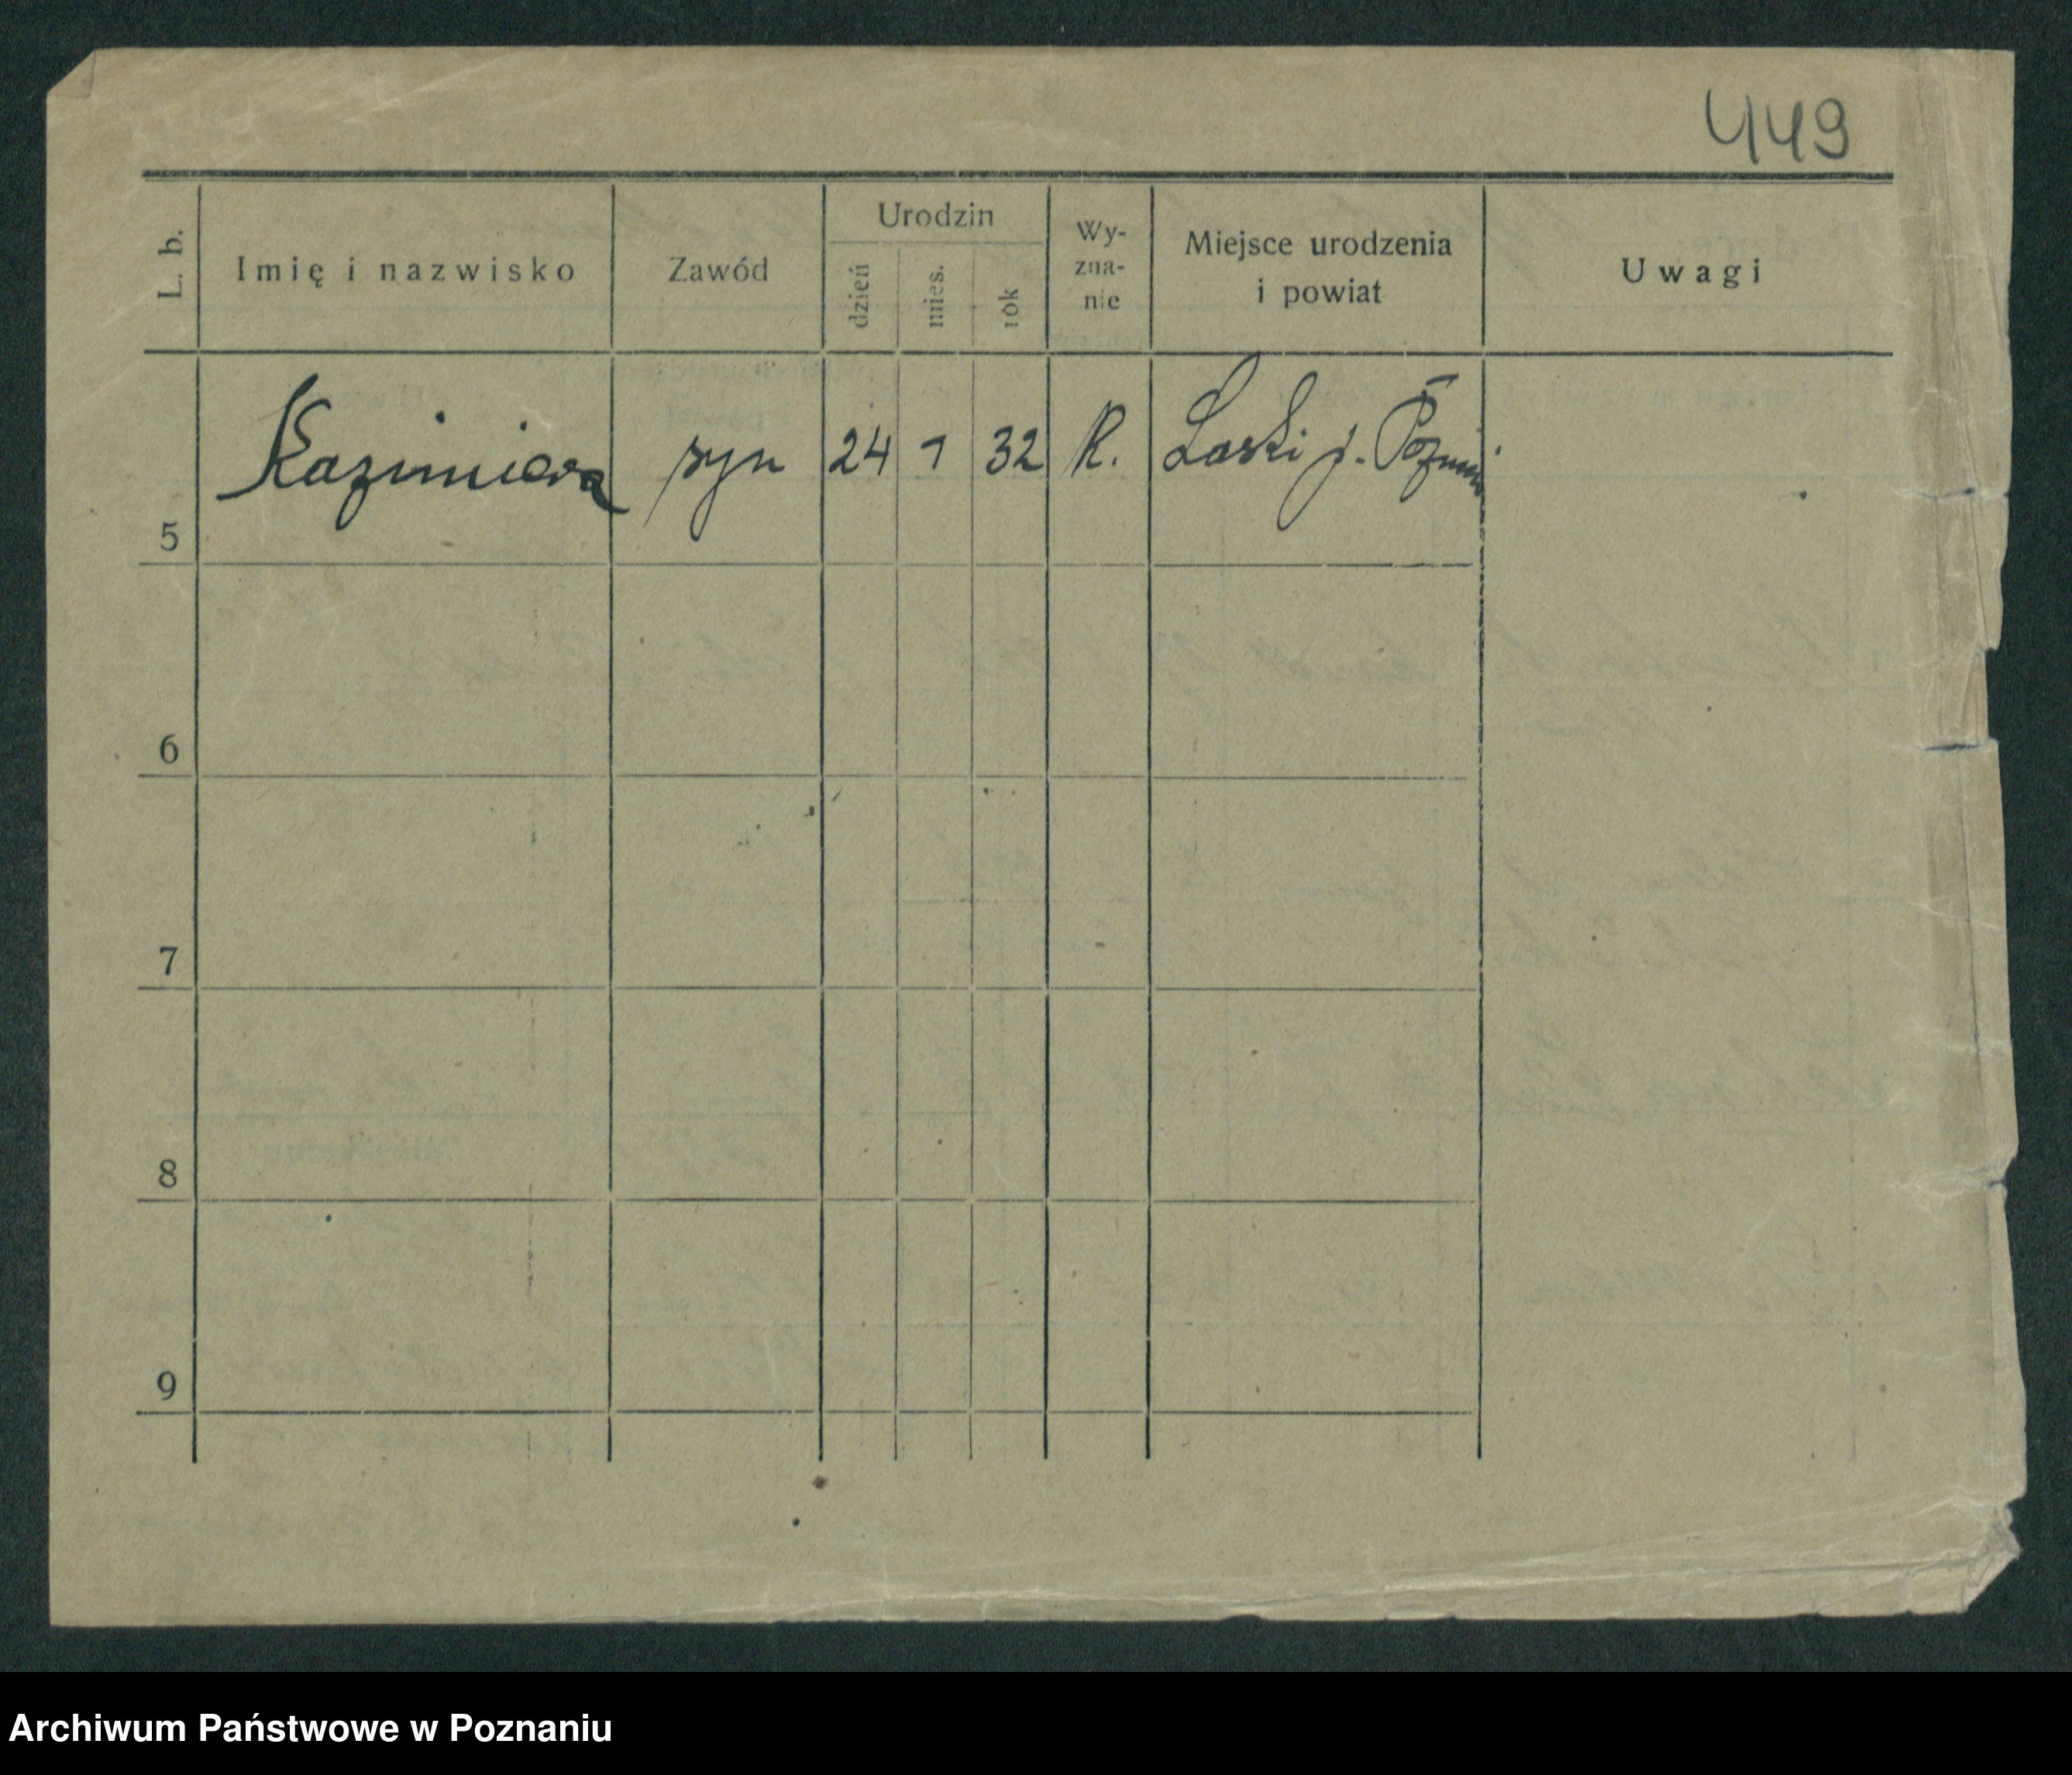 449
L. b.
Imię i nazwisko
Zawód
Urodzin
dzień
mies.
rok
Wy-
zna-
nie
Miejsce urodzenia
i powiat
Uwagi
5 Kazimiera syn 24 1 32 R. Laski p.
6
7
8
9
Archiwum Państwowe w Poznaniu